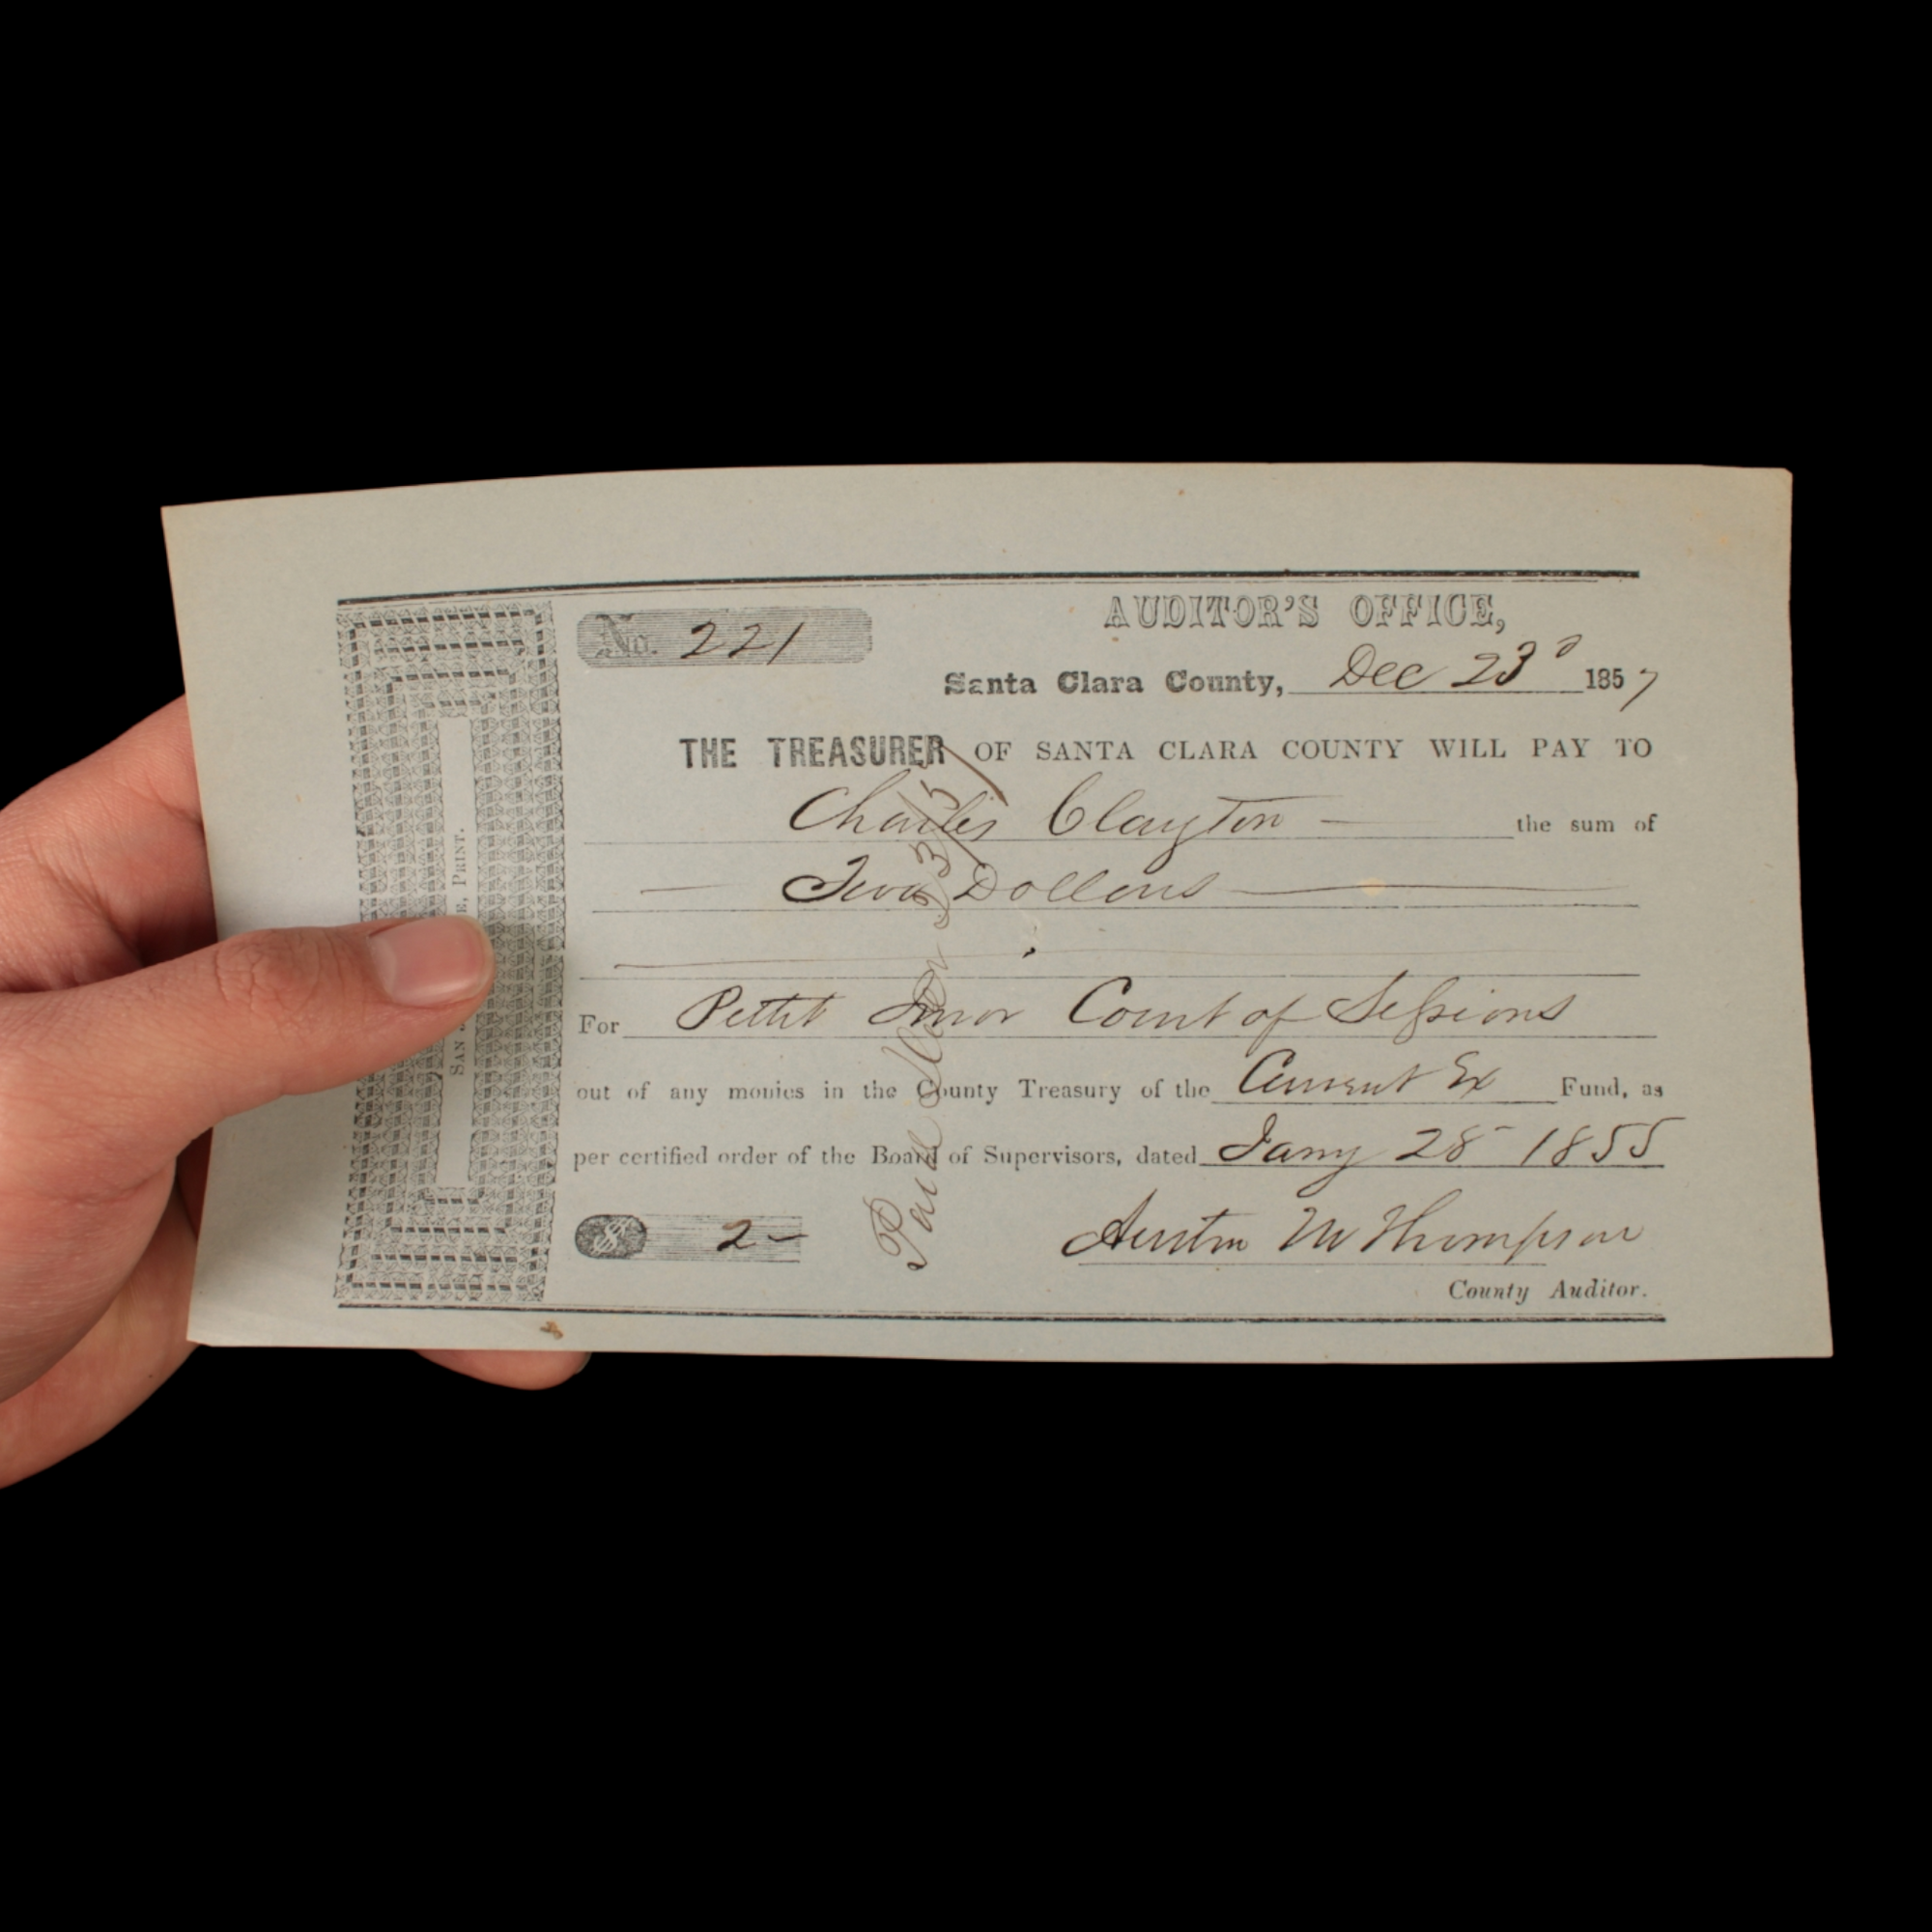 AUDITOR'S OFFICE,
No. 221
Santa Clara County, Dec 23d 1857
THE TREASURER OF SANTA CLARA COUNTY WILL PAY TO
Charles Clayton the sum of
Two Dollars
For Pettit Juror Court of Sessions
out of any monies in the County Treasury of the Current Ex Fund, as
per certified order of the Board of Supervisors, dated Jany 28 1855
$ 2-
Austin M Thompson
County Auditor.
Paid
SAN
E, PRINT.